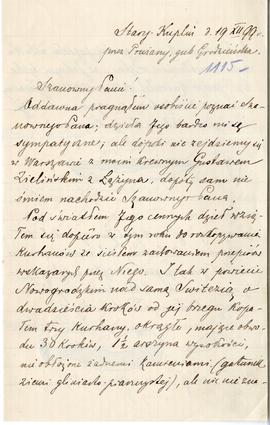 Stary-Kuplin d. 19 XII 99.
przez Prużany, gub. Grodzieńska.
1115
Szanowny Panie!
Oddawna pragnąłem osobiście poznać Sza-
nownego Pana; dzieła Jego bardzo mi są
sympatyczne; ale dopóki nie zejdziemy się
w Warszawie z moim krewnym Gustawem
Zielińskim z Łążyna, dopóty sam nie
śmiem nachodzić Szanownego Pana.
Pod światłem Jego cennych dzieł wzią-
łem się dopiero w tym roku do rozkopywania
Kurhanów ze ścisłem zachowaniem przepisów
wskazanych przez Niego. I tak w powiecie
Nowogrodzkim nad samą Świtezią, o
dwadzieścia kroków od jej brzegu kopa-
łem trzy kurhany, okrągłe, mające obwo-
du 30 kroków, 1½ arszyna wysokości,
nie obłożone żadnemi kamieniami (gatunek
ziemi gliniasto-piaszczystej), ale nic nie zna-